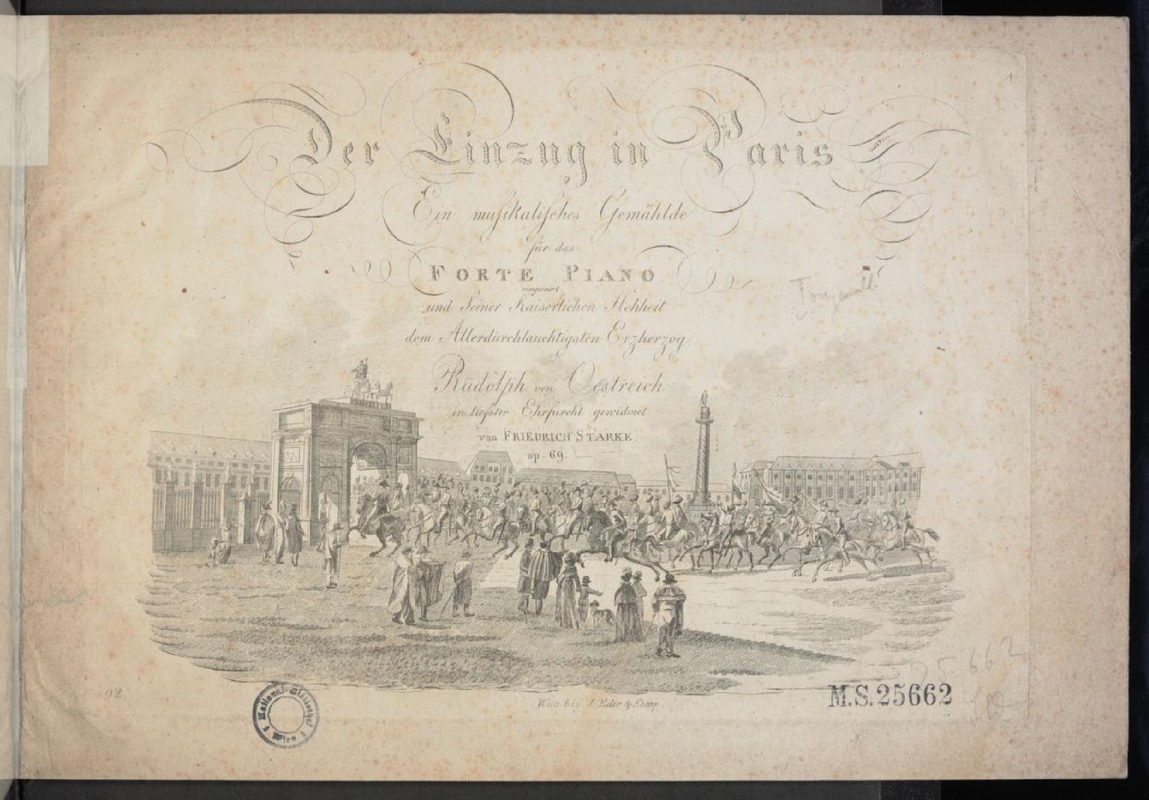 1
Der Einzug in Paris
Ein musikalisches Gemählde
für das
FORTE PIANO
componirt
und Seiner Kaiserlichen Hohheit
dem Allerdurchlauchtigsten Erzherzog
Rudolph von Oestreich
in tiefster Ehrfurcht gewidmet
von FRIEDRICH STARKE
op. 69.
25662
92
M.S.25662
Wien bey J. Eder & Comp.
National-Bibliothek
Wien